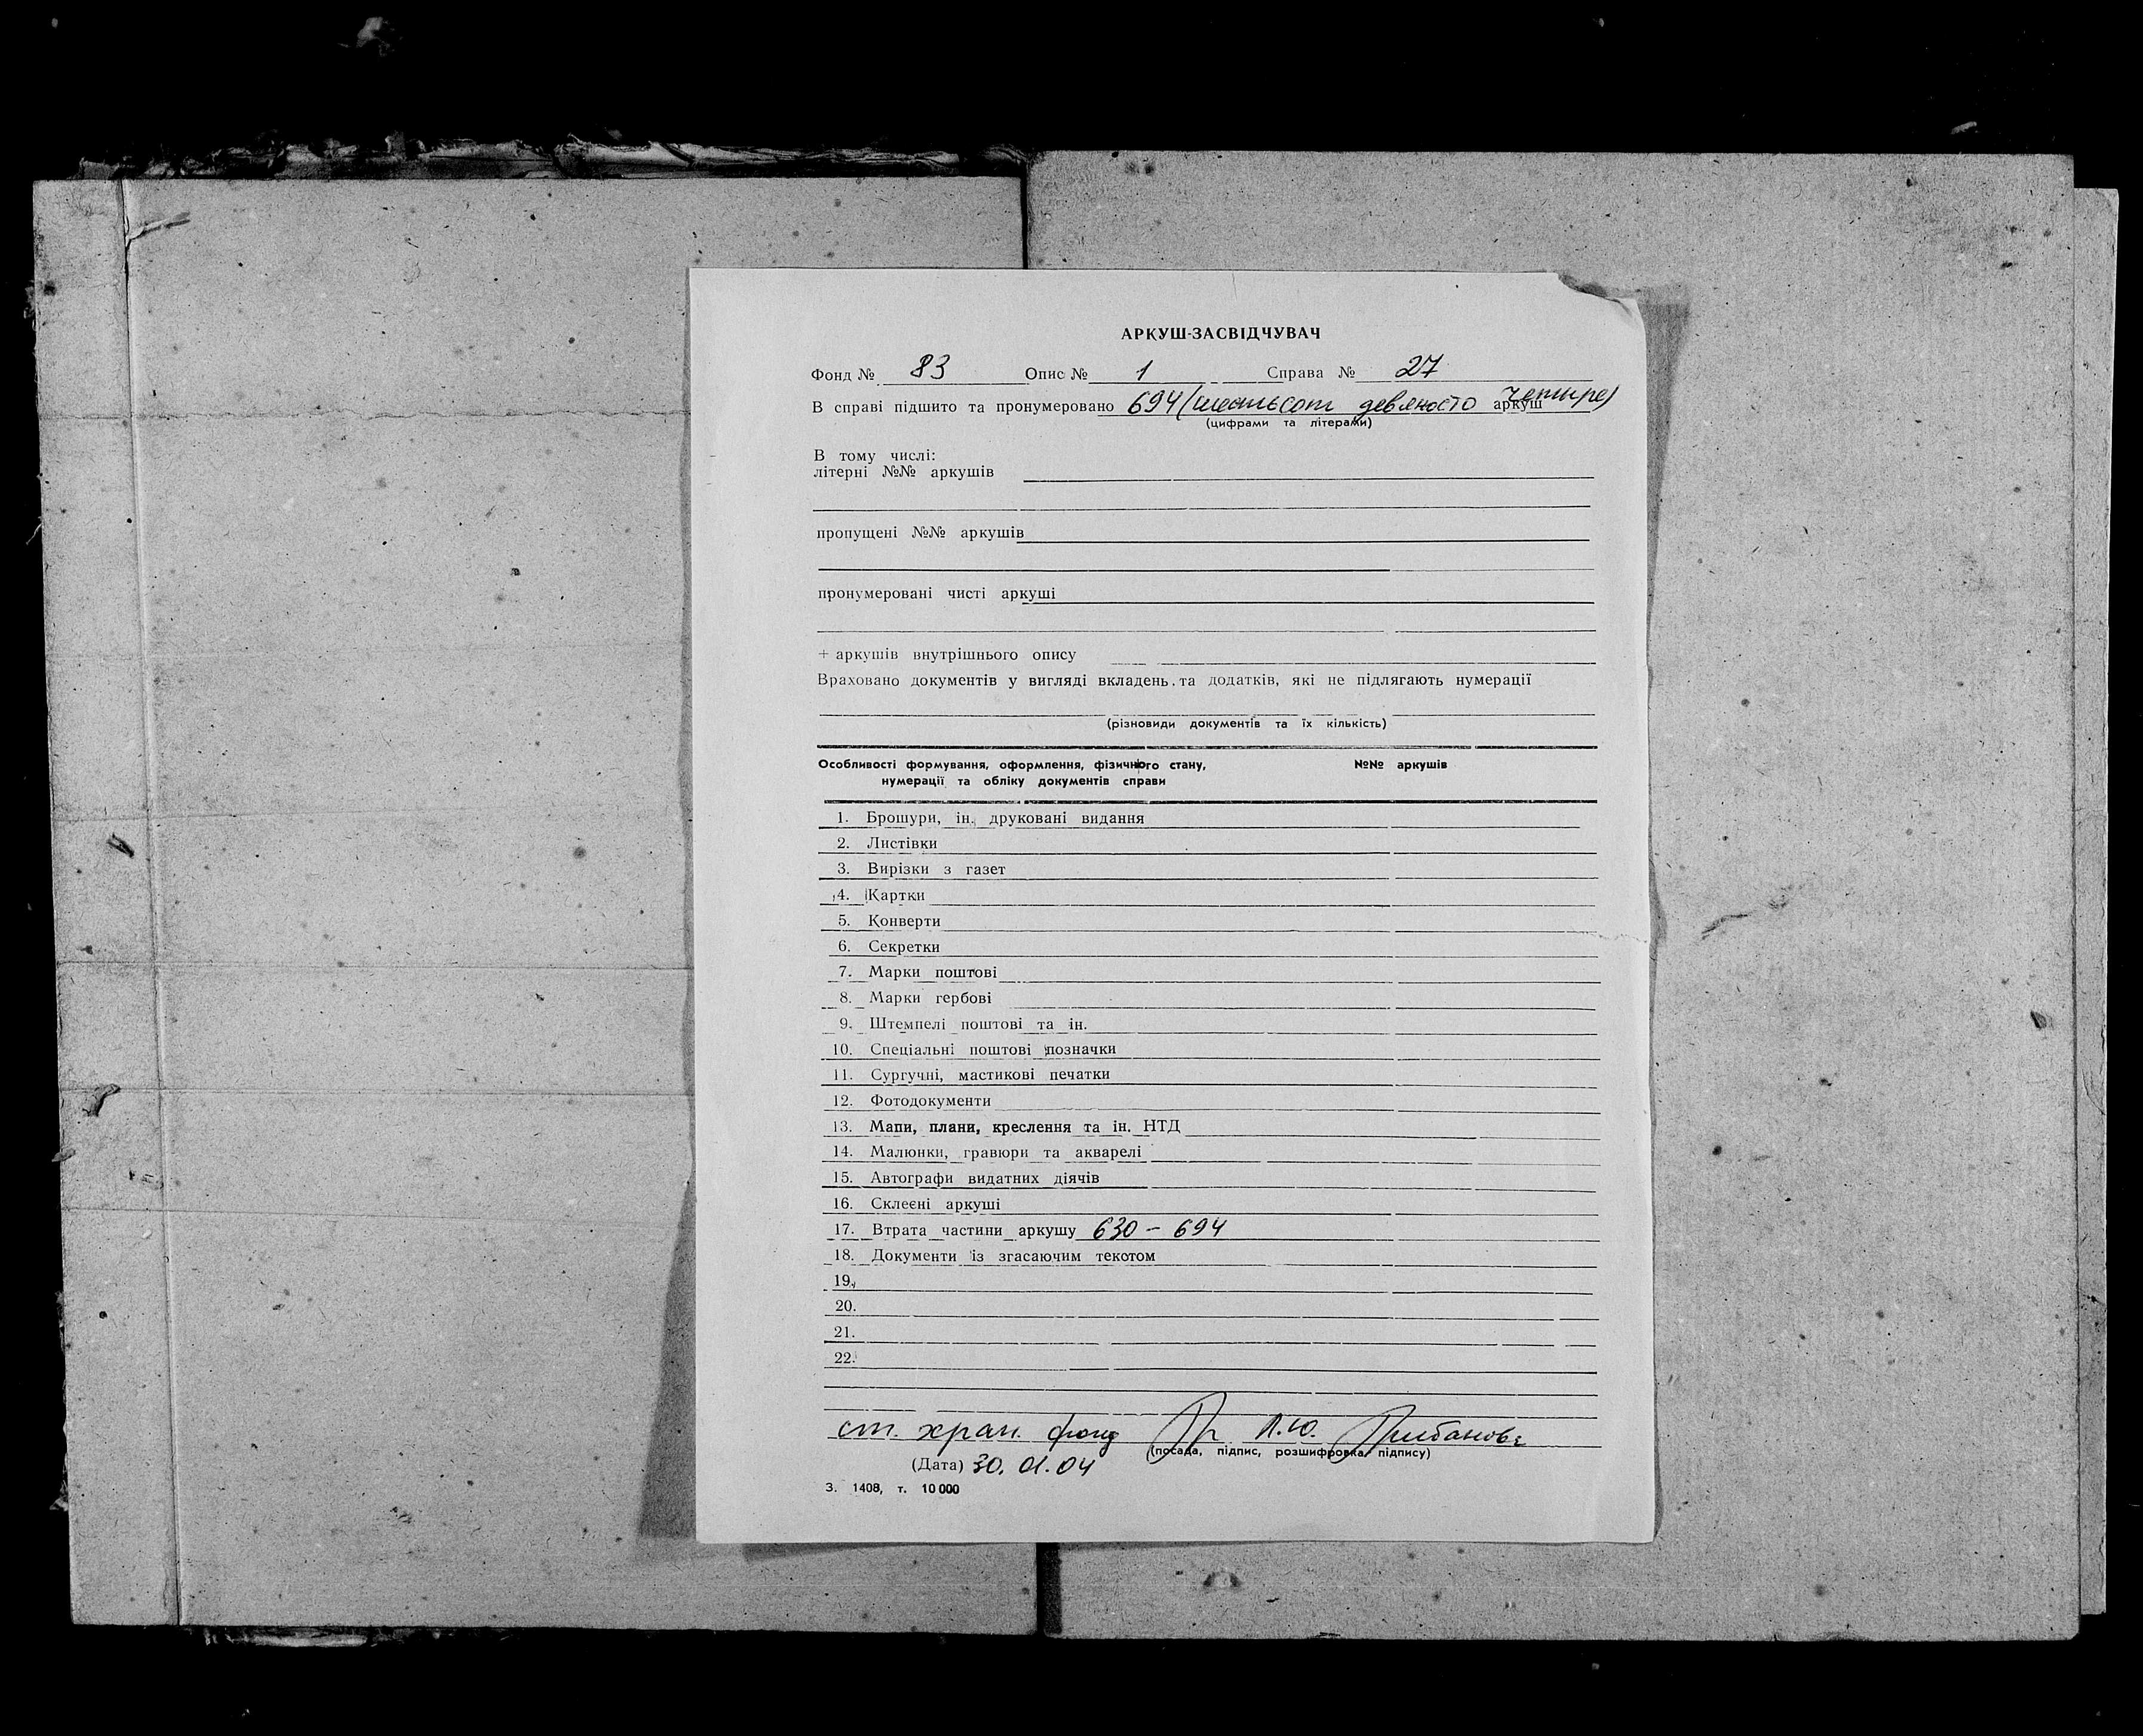 АРКУШ-ЗАСВІДЧУВАЧ
Фонд № 83 Опис № 1 Справа № 27
В справі підшито та пронумеровано 694 (шестьсот девяносто четыре) аркуш
(цифрами та літерами)
В тому числі:
літерні №№ аркушів
пропущені №№ аркушів
пронумеровані чисті аркуші
+ аркушів внутрішнього опису
Враховано документів у вигляді вкладень та додатків, які не підлягають нумерації
(різновиди документів та їх кількість)
Особливості формування, оформлення, фізичного стану, №№ аркушів
нумерації та обліку документів справи
1. Брошури, ін. друковані видання
2. Листівки
3. Вирізки з газет
4. Картки
5. Конверти
6. Секретки
7. Марки поштові
8. Марки гербові
9. Штемпелі поштові та ін.
10. Спеціальні поштові позначки
11. Сургучні, мастикові печатки
12. Фотодокументи
13. Мапи, плани, креслення та ін. НТД
14. Малюнки, гравюри та акварелі
15. Автографи видатних діячів
16. Склеєні аркуші
17. Втрата частини аркушу 630 - 694
18. Документи із згасаючим текотом
19.
20.
21.
22.
ст. хран. фонд
(посада, підпис, розшифровка підпису)
(Дата) 30.01.04
З. 1408, т. 10 000